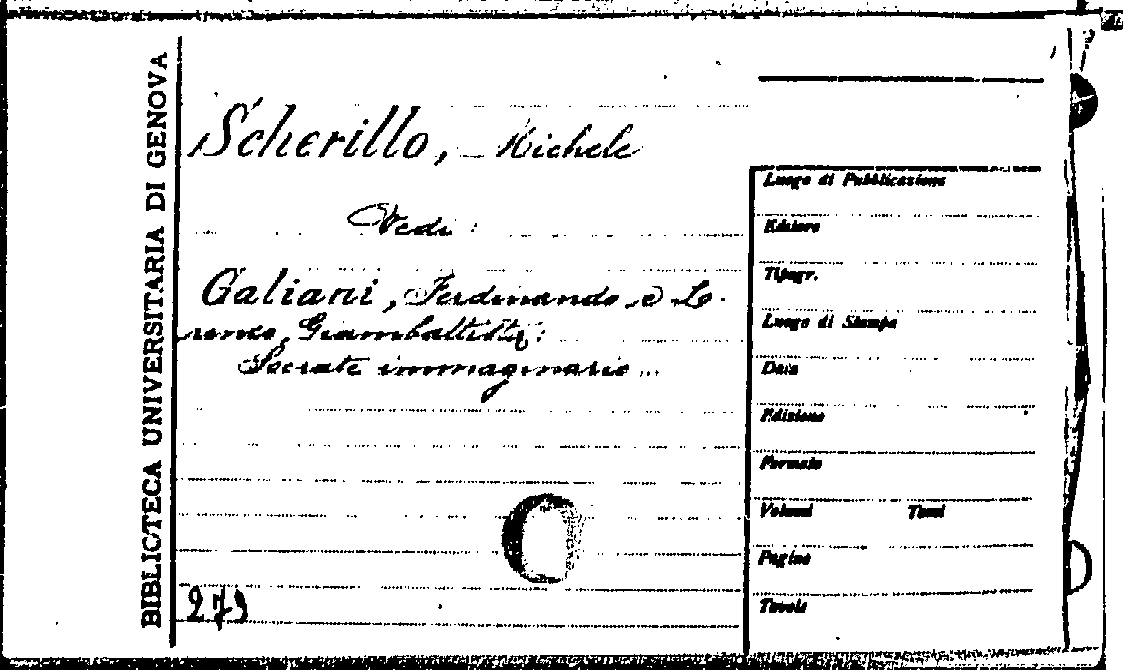 BIBLIOTECA UNIVERSITARIA DI GENOVA
Scherillo, Michele
Vedi:
Galiani, Ferdinando e Lo-
renzo, Giambattista:
Socrate immaginario...
279
Luogo di Pubblicazione
Editore
Tipogr.
Luogo di Stampa
Data
Edizione
Formato
Volumi Tomi
Pagine
Tavole